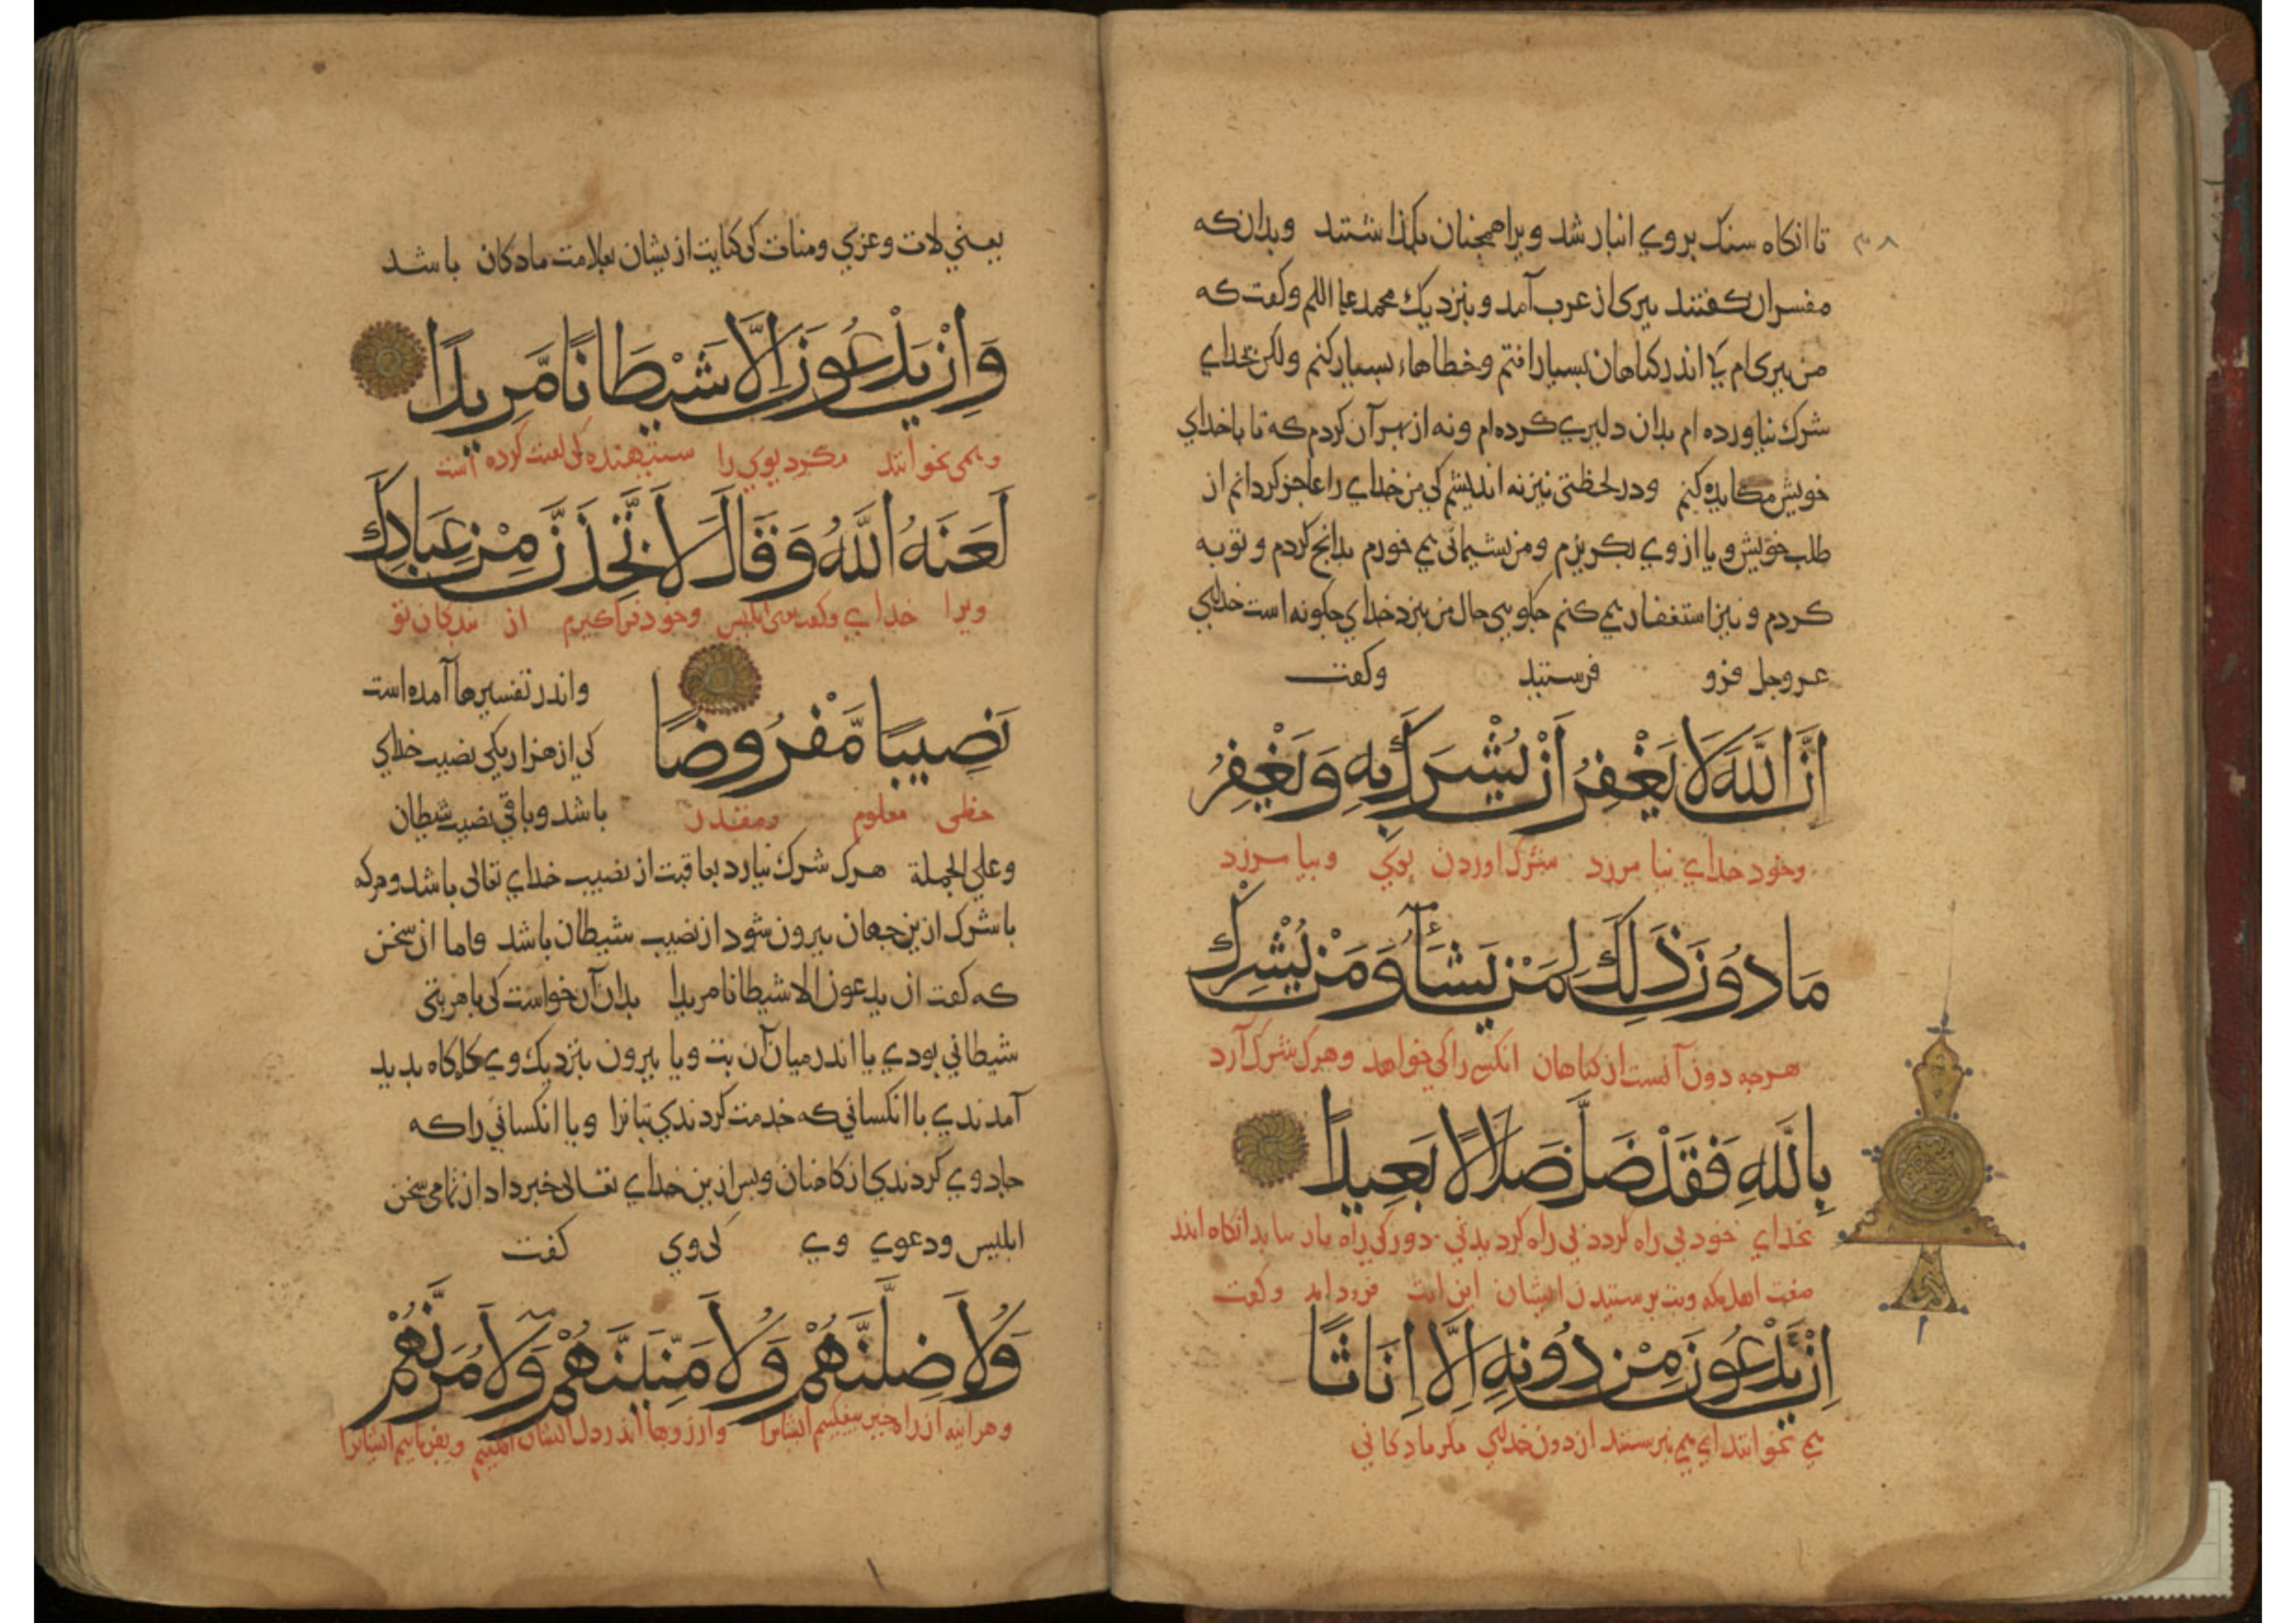 تا انکاه سنک بروي انبار شد ویرا همچنان بکذاشتند وبدانکه
مفسران کفتند پیری از عرب آمد و بنزدیک محمد علیه السلم وکفت که
من پیری‌ام کی اندر کناهان بسیار افتم وخطاهاء بسیار کنم ولکن بخدای
شرک نیاورده ام بدان دلیری کرده‌ام ونه از بهر آن کردم که تا با خدای
خویش مکابره کنم ودر لحظتی نیز نه اندیشم کی من خدای را عاجز کردانم از
طلب خویش ویا از وی بکریزم ومن پشیمانی می خورم بدانچ کردم و توبه
کردم و نیز استغفار می کنم چکویی حال من بنزد خدای چکونه است خدای
عزوجل فرو فرستید وکفت
إِنَّ اللَّهَ لَا يَغْفِرُ أَنْ يُشْرَكَ بِهِ وَيَغْفِرُ
وخود خدای نیامرزد شرک اوردن بوی وبیامرزد
مَا دُونَ ذَلِكَ لِمَنْ يَشَآءُ وَمَنْ يُشْرِكْ
هرچه دون آنست از کناهان انکس را کی خواهد وهرک شرک آرد
بِاللَّهِ فَقَدْ ضَلَّ ضَلَالًا بَعِيدًا
بخدای خود بی راه کردد بی راه کردیدنی دور کی راه باز نیابد انکاه اندر
صفت اهل مکه وبت پرستیدن ایشان این ایت فرود امد وکفت
إِنْ يَدْعُونَ مِنْ دُونِهِ إِلَّا إِنَاثًا
می نخوانند ای می نپرستند از دون خدای مکر مادکانی
یعني لات وعزی ومنات کی کنایت ازیشان بعلامت مادکان باشد
وَإِنْ يَدْعُونَ إِلَّا شَيْطَانًا مَّرِيدًا
وهمی نخوانند مکر دیوی را ستنبهنده کی لعنت کرده است
لَعَنَهُ اللَّهُ وَقَالَ لَأَتَّخِذَنَّ مِنْ عِبَادِكَ
ویرا خدای وکفت ابلیس وخود فراکیرم از بندکان تو
نَصِيبًا مَّفْرُوضًا
حظی معلوم ومقدر
واندر تفسیرها آمده است
کی از هزار یکی نصیب خدای
باشد وباقی نصیب شیطان
وعلی الجملة هرک شرک نیارد بعاقبت از نصیب خدای تعالی باشد وهرکه
با شرک ازین جهان بیرون شود از نصیب شیطان باشد واما از سخن
که کفت ان یدعون الا شیطانا مریدا بدان آن خواست کی با هر بتی
شیطانی بودی یا اندر میان آن بت ویا بیرون بنزدیک وی کاه کاه بدید
آمدندی با انکسانی که خدمت کردندی بتانرا ویا انکسانی را که
جادوی کردندی از کاهنان وپس ازین خدای تعالی خبر داد از تمامی سخن
ابلیس ودعوی وی کی وی کفت
وَلَأُضِلَّنَّهُمْ وَلَأُمَنِّيَنَّهُمْ وَلَآمُرَنَّهُمْ
وهراینه از راه بیفکنیم ایشانرا وارزوها اندر دل ایشان افکنیم وبفرماییم ایشانرا